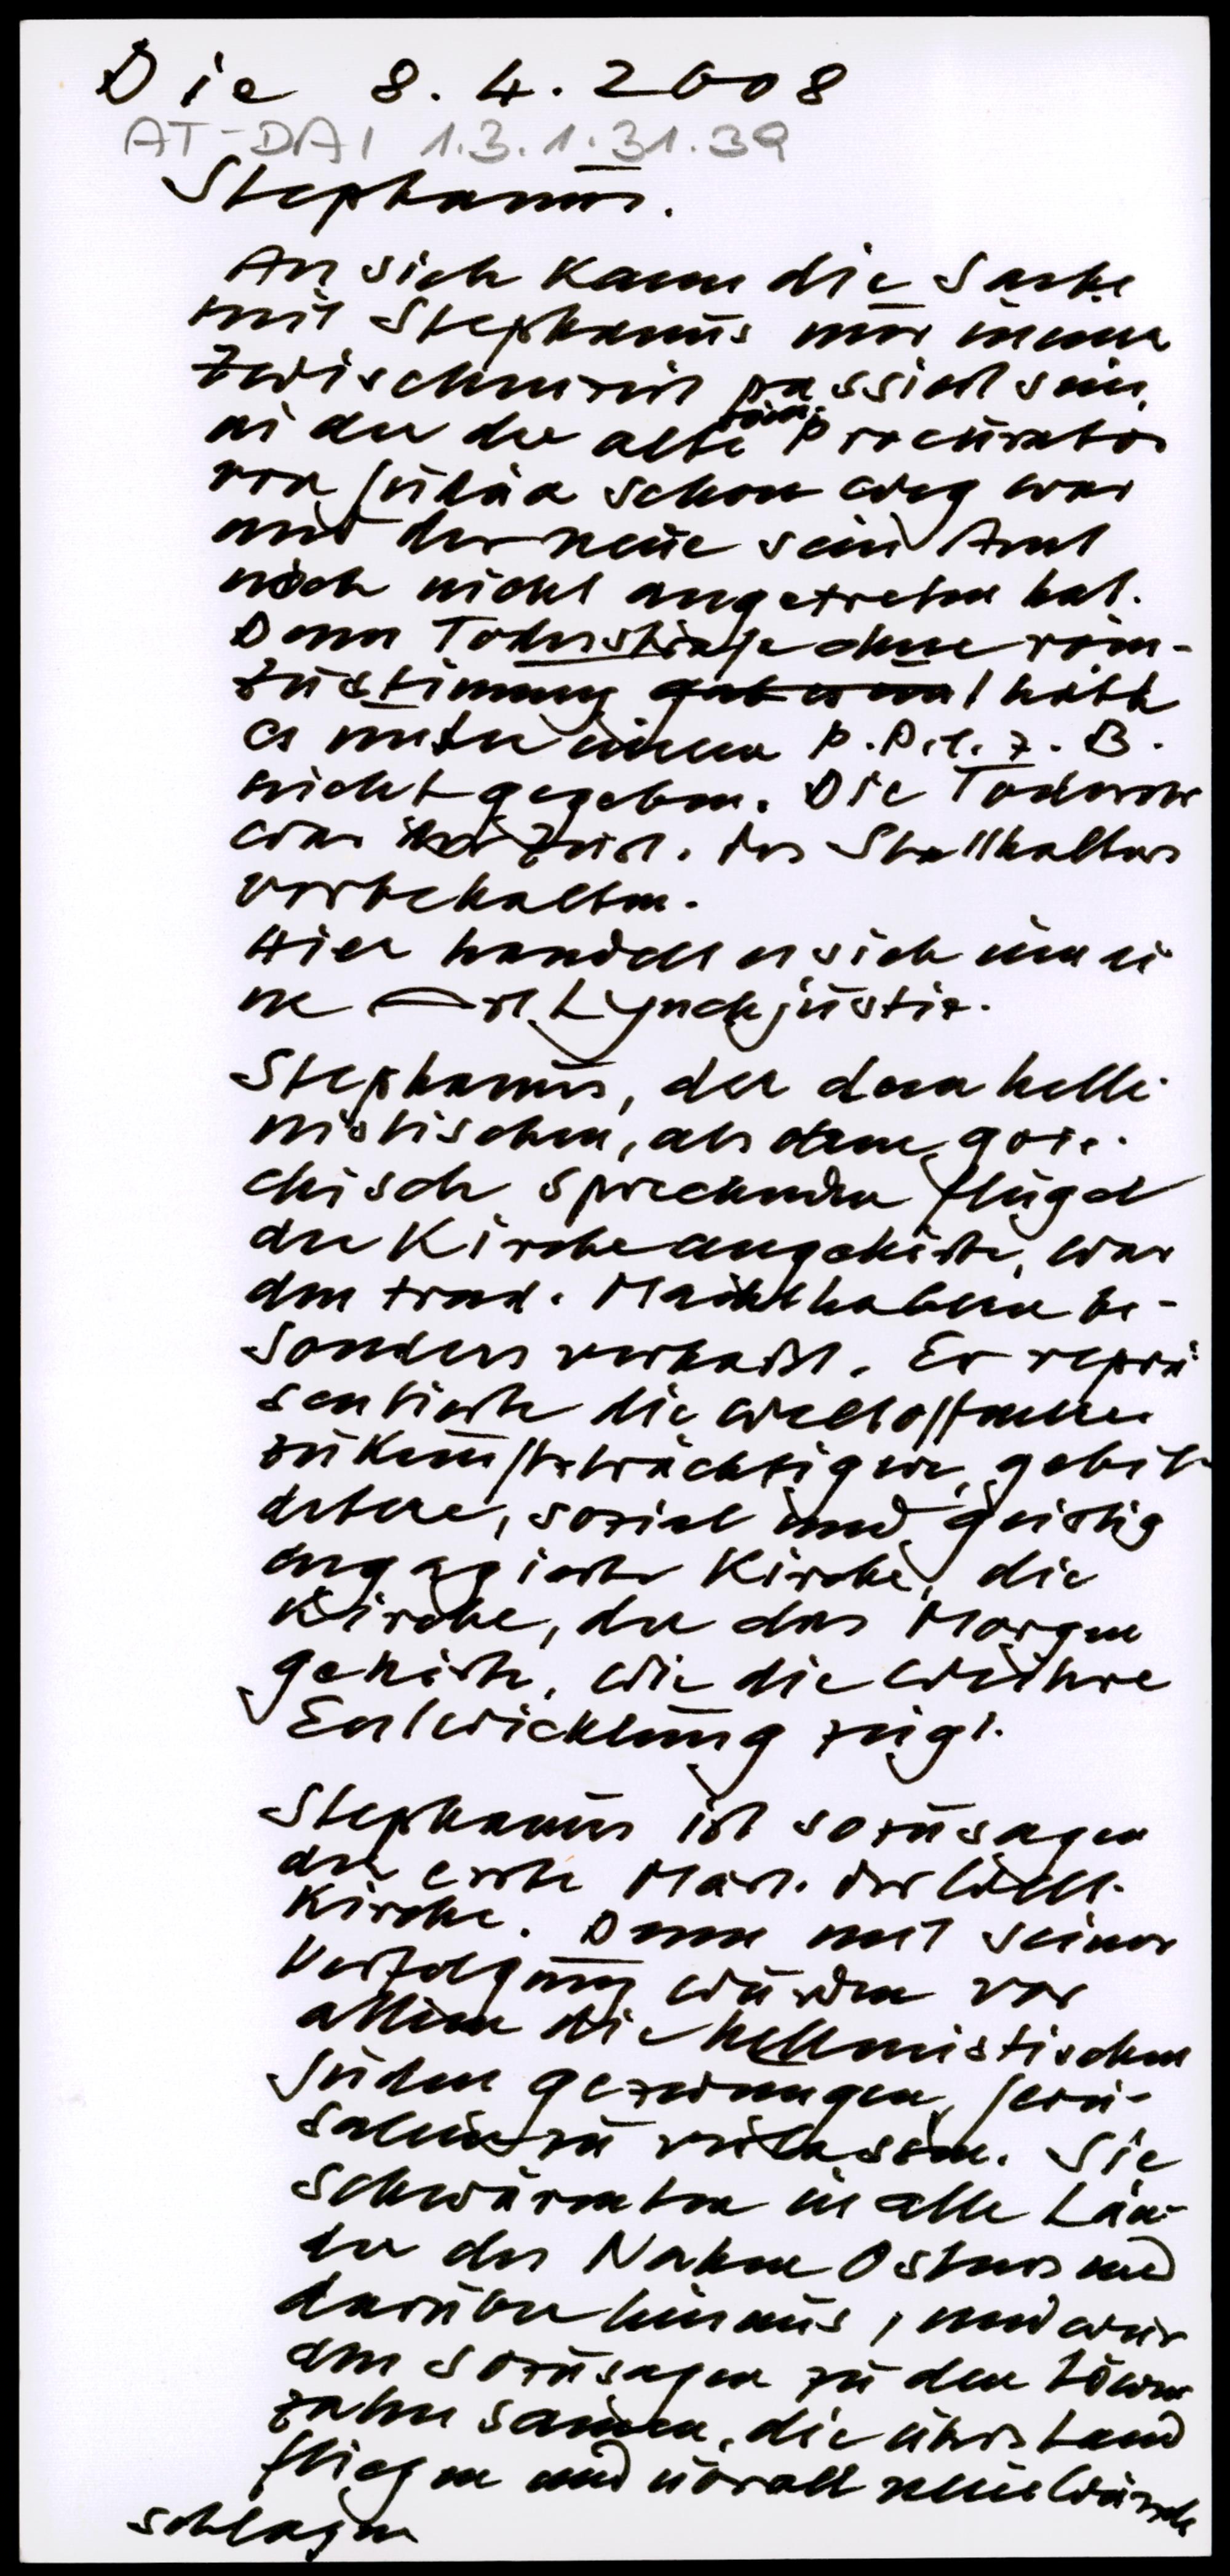 Die 8.4.2008
AT-DAI 1.3.1.31.39
Stephanus.
An sich kann die Sache
mit Stephanus nur in einer
Zwischenzeit passiert sein,
in der der alte röm. Procurator
von Judäa schon weg war
und der neue sein Amt
noch nicht angetreten hat.
Denn Todesstrafe ohne röm-
Zustimmung gab es mal hätte
es unter einem P. Pil. z. B.
nicht gegeben. Die Todesstr
war der Zust. des Statthalters
vorbehalten.
Hier handelt es sich um ei
ne Art Lynchjustiz.
Stephanus, der dem helle
nistischen, also dem grie-
chisch sprechenden Flügel
der Kirche angehörte, war
den trad. Machthabern be-
sonders verhaßt. Er reprä
sentierte die weltoffenere
zukunftsträchtigere, gebil-
detere, sozial und geistig
engagierte Kirche, die
Kirche, der das Morgen
gehörte, wie die weitere
Entwicklung zeigt.
Stephanus ist sozusagen
der erste Märt. der Welt-
Kirche. Denn mit seiner
Verfolgung wurden vor
allem die hellenistischen
Juden gezwungen, Jeru-
salem zu verlassen. Sie
schwärmten in alle Län-
der des Nahen Ostens und
darüber hinaus, und wur
den sozusagen zu den Löwen
zahn samen, die übers Land
fliegen und überall neue Wurzeln
schlagen